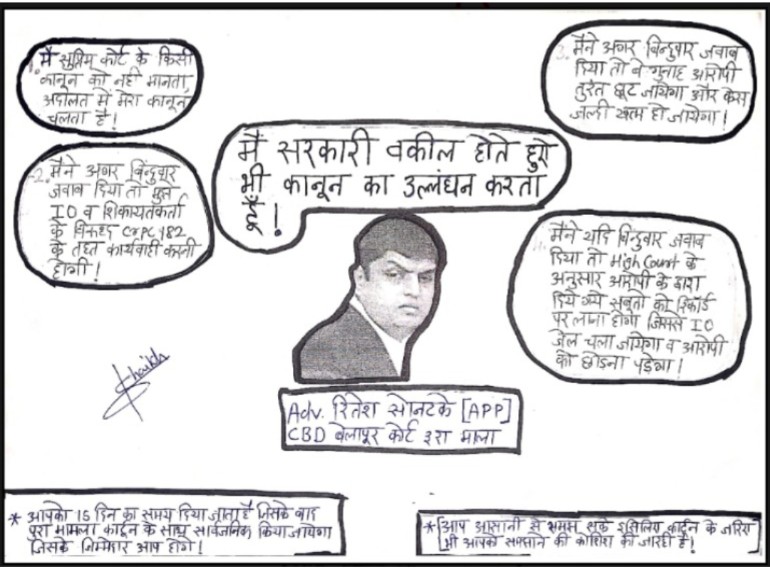 1. मैं सुप्रिम कोर्ट के किसी
कानून को नही मानता,
अदालत में मेरा कानून
चलता है!
2. मैने अगर बिंदुवार
जवाब दिया तो मुझे
IO व शिकायतकर्ता
के विरूद्ध CrPC 182
के तहत कार्यवाही करनी
होगी!
मैं सरकारी वकील होते हुए
भी कानून का उल्लंघन करता
हूँ!
3. मैने अगर बिन्दुवार जवाब
दिया तो बे गुनाह आरोपी
तुरंत छूट जायेगा और केस
जल्दी खत्म हो जायेगा!
मैने यदि बिन्दुवार जवाब
दिया तो High Court के
अनुसार आरोपी के द्वारा
दिये गये सबूतो को रिकॉर्ड
पर लाना होगा जिससे IO
जेल चला जायेगा व आरोपी
को छोडना पड़ेगा!
Shaikh
Adv. रितेश सोनटके [APP]
CBD बेलापूर कोर्ट 3रा माला
* आपको 15 दिन का समय दिया जाता है जिसके बाद
पूरा मामला कार्टून के साथ सार्वजनिक किया जायेगा
जिसके जिम्मेदार आप होगे!
* आप आसानी से समझ सके इसलिए कार्टून के जरिए
भी आपको समझाने की कोशिश की जा रही है!